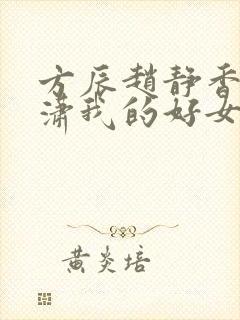 方辰趙静香
潇我的好女
黄炎培